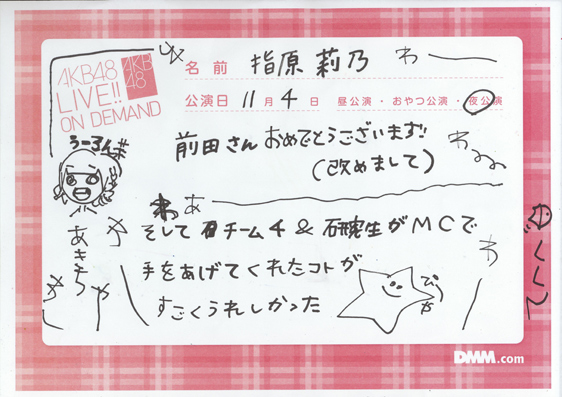 AKB48
LIVE!!
ON DEMAND
AKB
48
名前 指原莉乃
公演日 11月4日 昼公演・おやつ公演・夜公演
前田さんおめでとうございます!!
(改めまして)
そしてチーム4&研究生がMCで
手をあげてくれたコトが
すごくうれしかった
わー
わぁ
ろーるん
あきちゃ
ぴっや
くくく
DMM.com